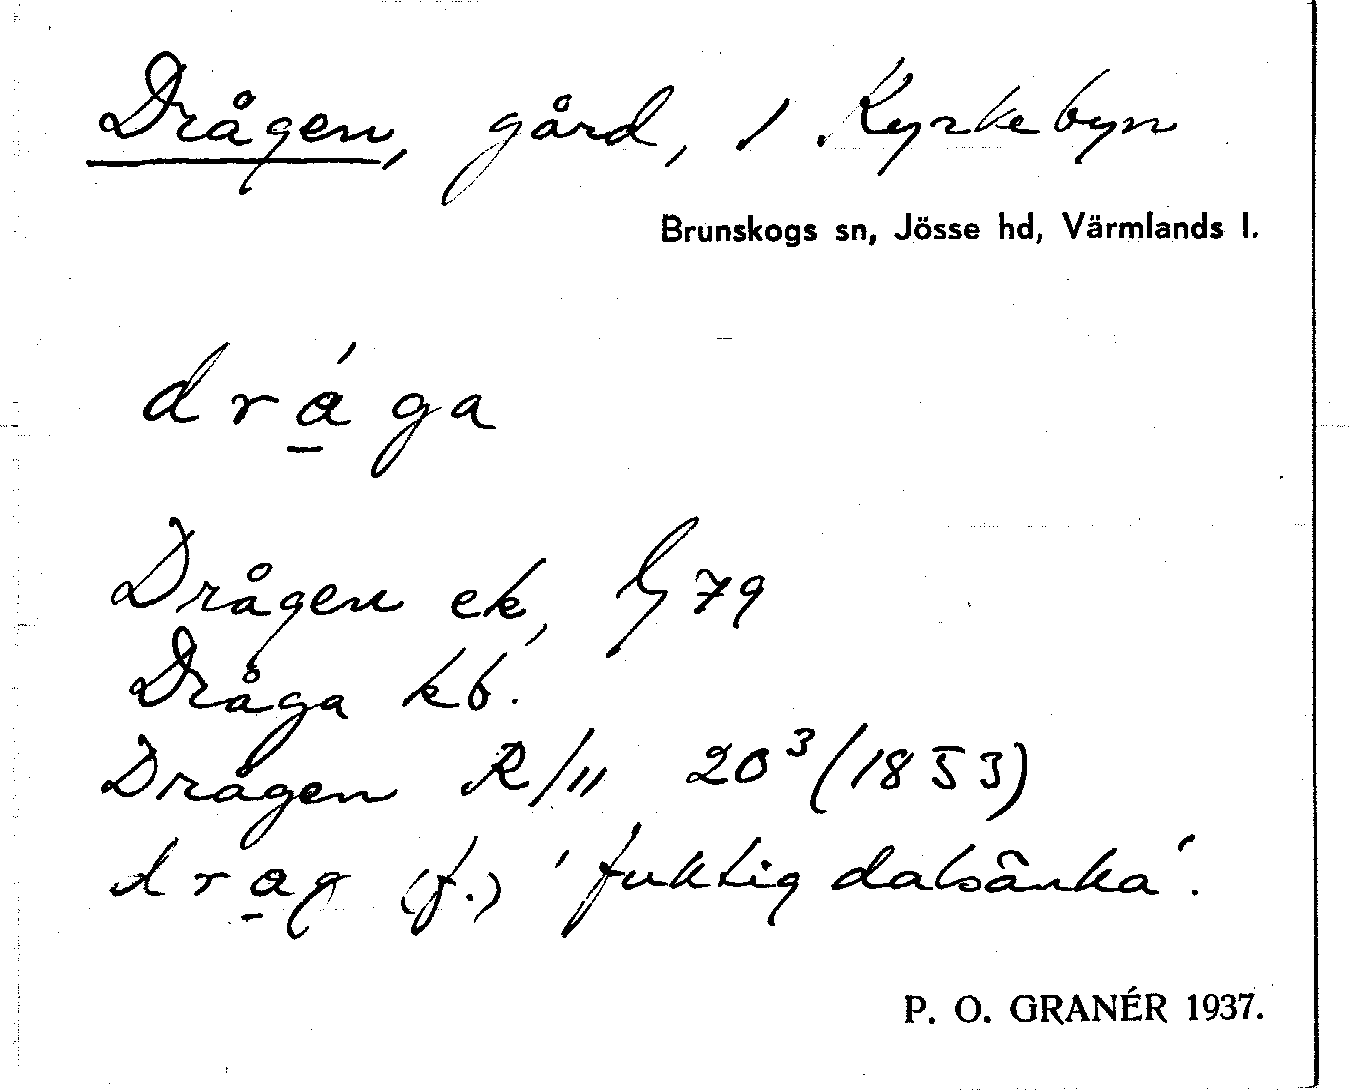 Drågen, gård, / Kyrkebyn
Brunskogs sn, Jösse hd, Värmlands l.
drá̱ga
Drågen ek, Lj 79
Dråga kb.
Drågen R/11 20³ (1853)
dra̱g (f.) 'fuktig dalsänka'.
P. O. GRANÉR 1937.